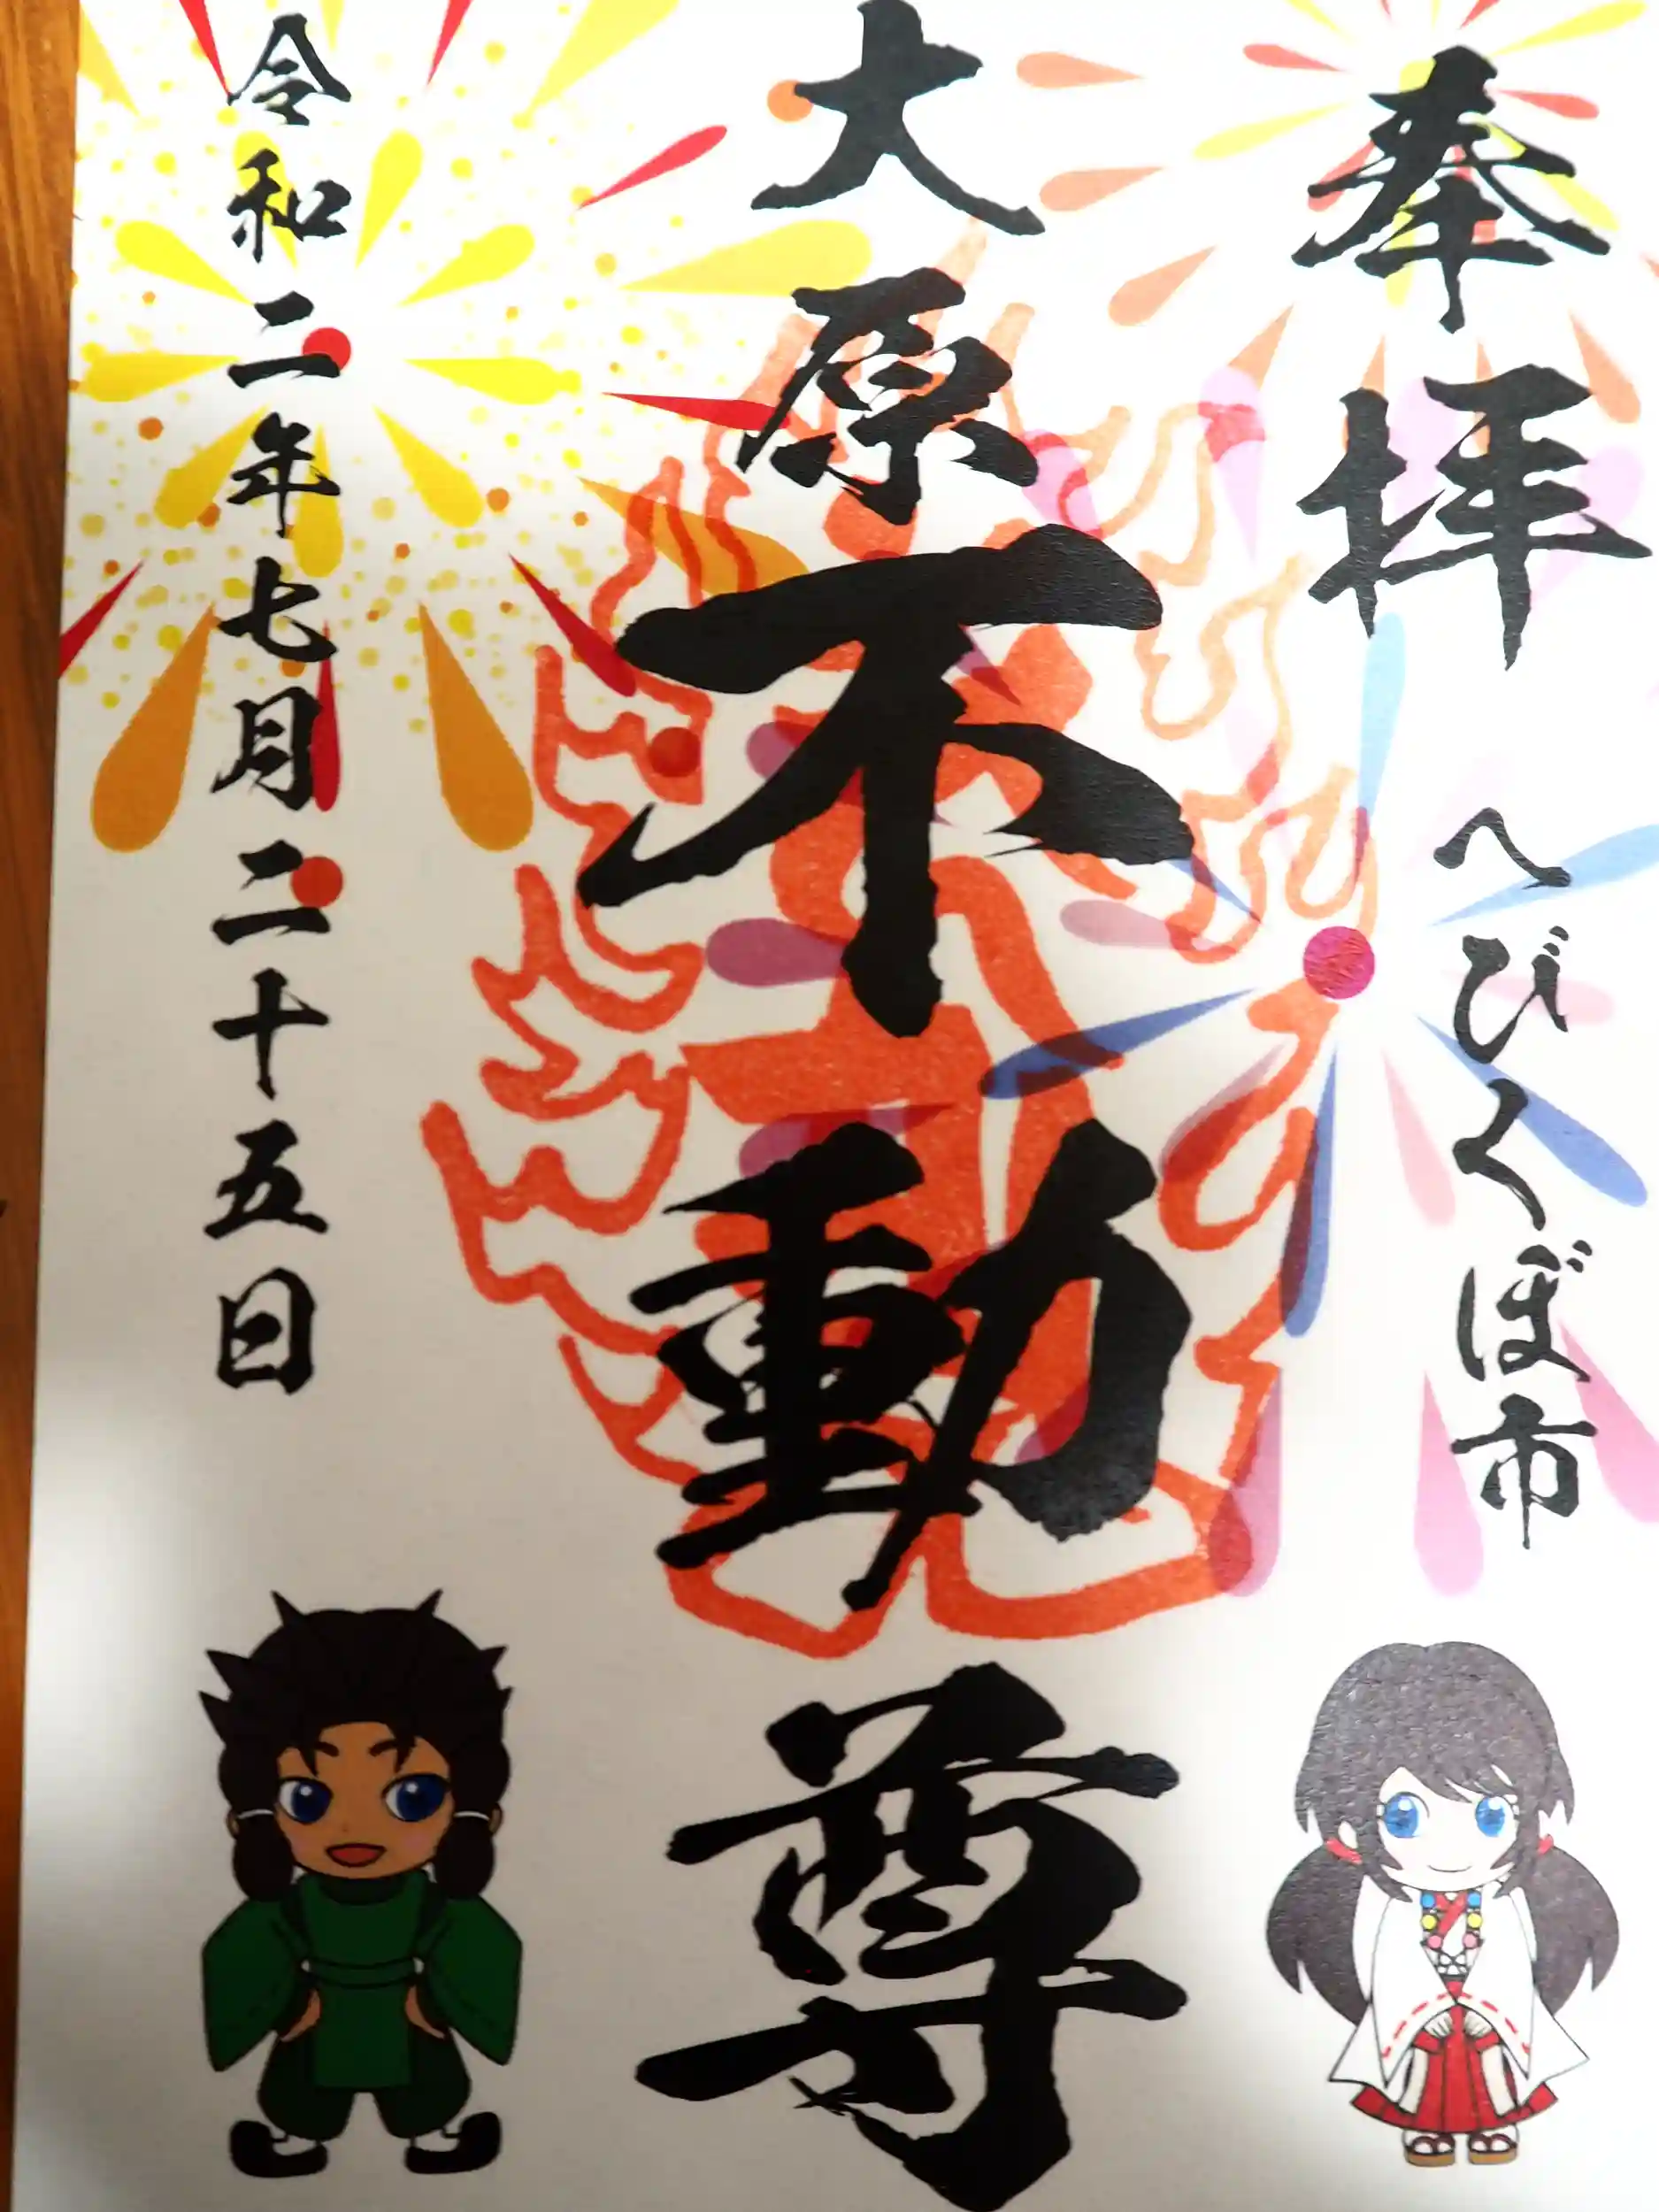 奉拝 へびくぼ市
大原不動尊
令和二年七月二十五日